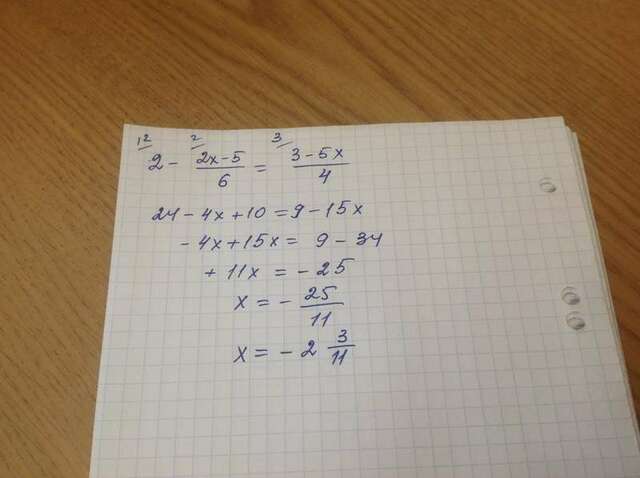 12 2 3
2 - (2x-5)/6 = (3-5x)/4
24 - 4x + 10 = 9 - 15x
- 4x + 15x = 9 - 34
+ 11x = - 25
x = - 25/11
x = - 2 3/11